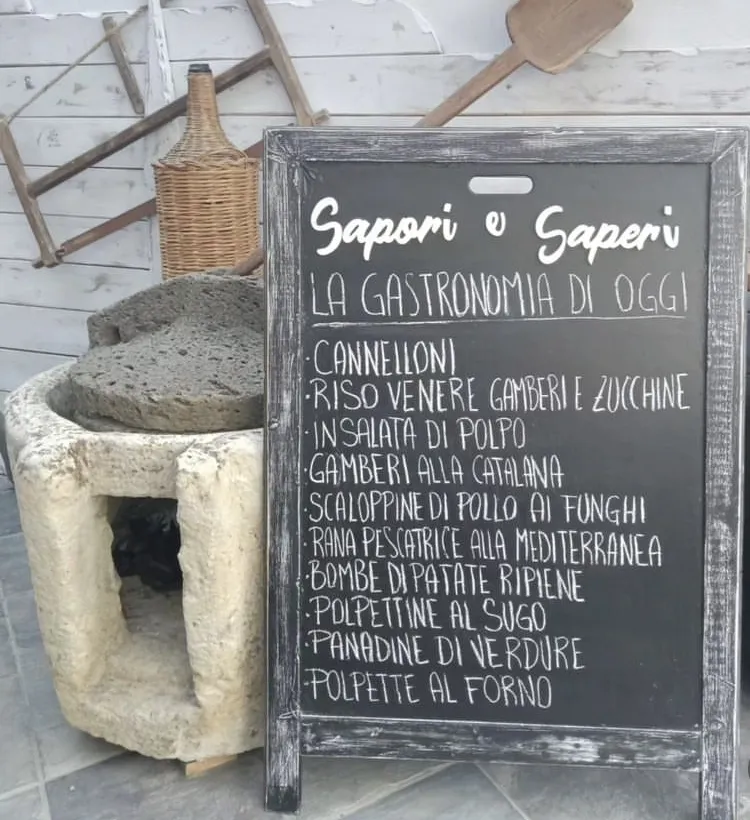 Sapori e Saperi
LA GASTRONOMIA DI OGGI
·CANNELLONI
·RISO VENERE GAMBERI E ZUCCHINE
·INSALATA DI POLPO
·GAMBERI ALLA CATALANA
·SCALOPPINE DI POLLO AI FUNGHI
·RANA PESCATRICE ALLA MEDITERRANEA
·BOMBE DI PATATE RIPIENE
·POLPETTINE AL SUGO
·PANADINE DI VERDURE
·POLPETTE AL FORNO